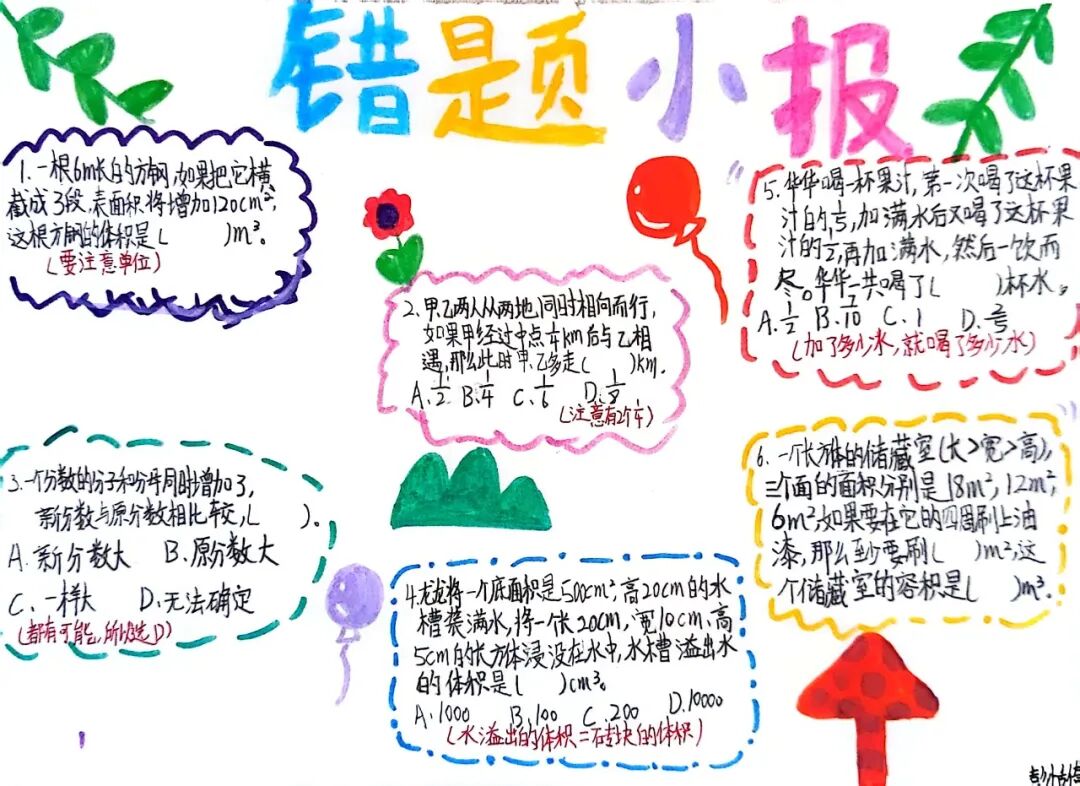 错题小报
1.一根6m长的方钢,如果把它横
截成3段,表面积将增加120cm²,
这根方钢的体积是(    )m³。
(要注意单位)
2.甲、乙两人从两地同时相向而行,
如果甲经过中点 km后与乙相
遇,那么此时甲、乙多走(    )km.
A.1/2 B.1/4 C.1/6 D.1/8
(注意有2个 )
3.一个分数的分子和分母同时增加了3,
新分数与原分数相比较,(    )。
A.新分数大 B.原分数大
C.一样大 D.无法确定
(都有可能,所以选D)
4.龙龙将一个底面积是500cm²,高20cm的水
槽装满水,将一个长20cm,宽10cm、高
5cm的长方体浸没在水中,水槽溢出水
的体积是(    )cm³。
A.1000 B.100 C.200 D.10000
(水溢出的体积=砖块的体积)
5.华华喝一杯果汁,第一次喝了这杯果
汁的1/5,加满水后又喝了这杯果
汁的1/2,再加满水,然后一饮而
尽。华华一共喝了(    )杯水。
A.1/2 B.7/10 C.1 D.
(加了多少水,就喝了多少水)
6.一个长方体的储藏室(长>宽>高),
三个面的面积分别是18m²,12m²,
6m²,如果要在它的四周刷上油
漆,那么至少要刷(    )m²,这
个储藏室的容积是(    )m³.